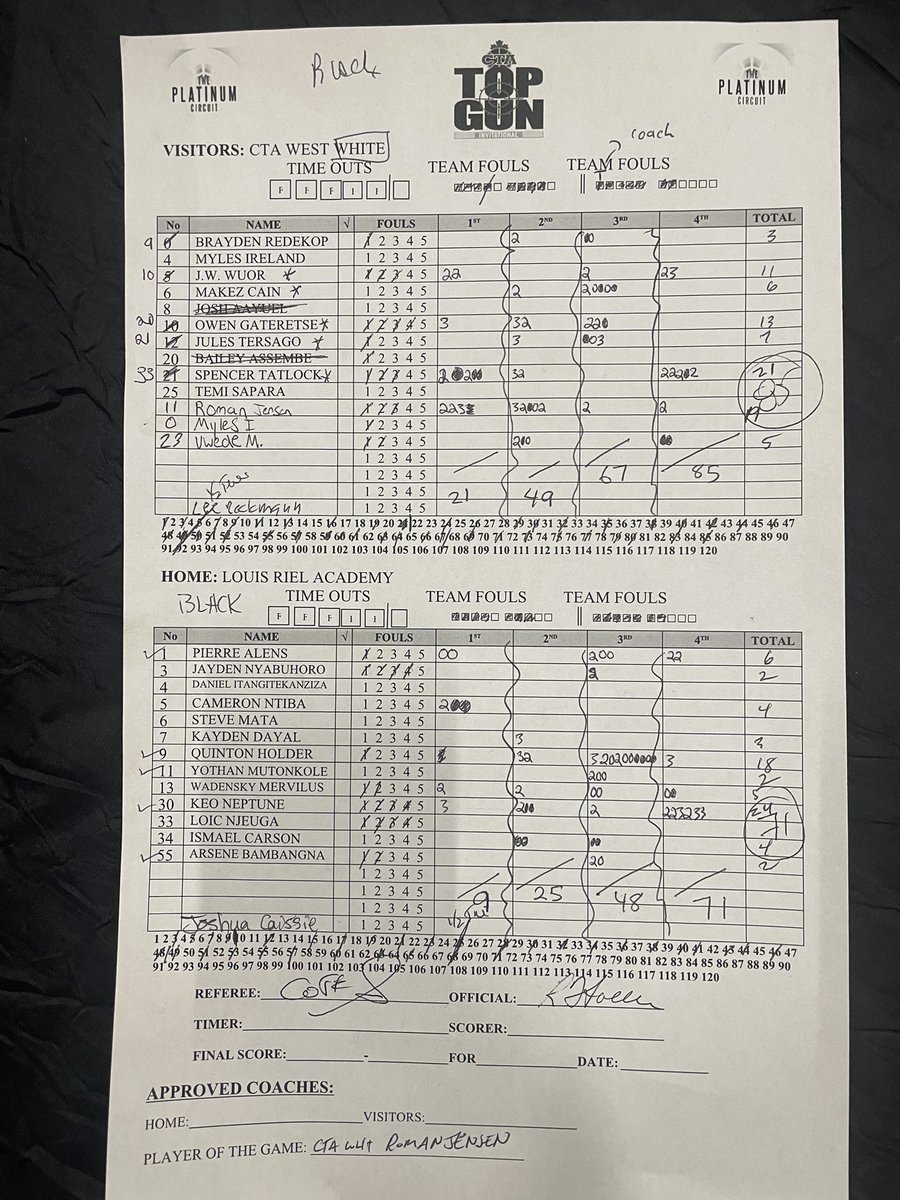 THE
PLATINUM
CIRCUIT
CTA
TOP
GUN
INVITATIONAL
THE
PLATINUM
CIRCUIT
coach
VISITORS: CTA WEST WHITE
TIME OUTS TEAM FOULS TEAM FOULS
F F F I I
No NAME √ FOULS 1ST 2ND 3RD 4TH TOTAL
9 BRAYDEN REDEKOP 1 2 3 4 5 2 3
4 MYLES IRELAND 1 2 3 4 5
10 8 J.W. WUOR 1 2 3 4 5 22 2 23 11
6 MAKEZ CAIN 1 2 3 4 5 2 6
8 JOSH AAYUEL 1 2 3 4 5
20 10 OWEN GATERETSE 1 2 3 4 5 3 32 13
21 12 JULES TERSAGO 1 2 3 4 5 3 7
20 BAILEY ASSEMBE 1 2 3 4 5
33 21 SPENCER TATLOCK 1 2 3 4 5 32 22202 21
25 TEMI SAPARA 1 2 3 4 5
11 Roman Jensen 1 2 3 4 5 32002 2 2
0 Myles I 1 2 3 4 5
23 Uwede M. 1 2 3 4 5 5
1 2 3 4 5
1 2 3 4 5 67 85
1 2 3 4 5 21 49
1 2 3 4 5
1 2 3 4 5 6 7 8 9 10 11 12 13 14 15 16 17 18 19 20 21 22 23 24 25 26 27 28 29 30 31 32 33 34 35 36 37 38 39 40 41 42 43 44 45 46 47
48 49 50 51 52 53 54 55 56 57 58 59 60 61 62 63 64 65 66 67 68 69 70 71 72 73 74 75 76 77 78 79 80 81 82 83 84 85 86 87 88 89 90
91 92 93 94 95 96 97 98 99 100 101 102 103 104 105 106 107 108 109 110 111 112 113 114 115 116 117 118 119 120
HOME: LOUIS RIEL ACADEMY
BLACK TIME OUTS TEAM FOULS TEAM FOULS
F F F I I
No NAME √ FOULS 1ST 2ND 3RD 4TH TOTAL
1 PIERRE ALENS 1 2 3 4 5 00 200 22 6
3 JAYDEN NYABUHORO 1 2 3 4 5 2 2
4 DANIEL ITANGITEKANZIZA 1 2 3 4 5
5 CAMERON NTIBA 1 2 3 4 5 4
6 STEVE MATA 1 2 3 4 5
7 KAYDEN DAYAL 1 2 3 4 5 3 3
9 QUINTON HOLDER 1 2 3 4 5 32 3 18
11 YOTHAN MUTONKOLE 1 2 3 4 5 200 2
13 WADENSKY MERVILUS 1 2 3 4 5 2 2 00 00 5
30 KEO NEPTUNE 1 2 3 4 5 3 2 223233 24
33 LOIC NJEUGA 1 2 3 4 5
34 ISMAEL CARSON 1 2 3 4 5 4
55 ARSENE BAMBANGNA 1 2 3 4 5 20 2
1 2 3 4 5
1 2 3 4 5 9 25 48 71
1 2 3 4 5
Joshua Caissie 1 2 3 4 5
1 2 3 4 5 6 7 8 9 10 11 12 13 14 15 16 17 18 19 20 21 22 23 24 25 26 27 28 29 30 31 32 33 34 35 36 37 38 39 40 41 42 43 44 45 46 47
48 49 50 51 52 53 54 55 56 57 58 59 60 61 62 63 64 65 66 67 68 69 70 71 72 73 74 75 76 77 78 79 80 81 82 83 84 85 86 87 88 89 90
91 92 93 94 95 96 97 98 99 100 101 102 103 104 105 106 107 108 109 110 111 112 113 114 115 116 117 118 119 120
REFEREE: OFFICIAL:
TIMER: SCORER:
FINAL SCORE: - FOR DATE:
APPROVED COACHES:
HOME: VISITORS:
PLAYER OF THE GAME: CTA WHT ROMAN JENSEN